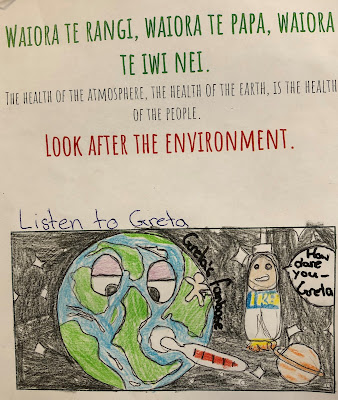 WAIORA TE RANGI, WAIORA TE PAPA, WAIORA
TE IWI NEI.
THE HEALTH OF THE ATMOSPHERE, THE HEALTH OF THE EARTH, IS THE HEALTH
OF THE PEOPLE.
LOOK AFTER THE ENVIRONMENT.
Listen to Greta
Greta's
How
dare
you -
Greta